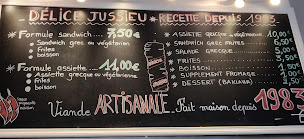 DÉLICE JUSSIEU * RECETTE DEPUIS 1983
* Formule sandwich....... 7,50€
- Sandwich grec ou végétarien
- frites
- boisson
* Formule assiette....... 11,00€
- Assiette grecque ou végétarienne
- boisson
* ASSIETTE GRECQUE ou végétarienne 10,00€
* SANDWICH GREC FRITES
* SALADE GRECQUE
* FRITES
* BOISSON
* SUPPLEMENT FROMAGE
* DESSERT (BAKLAVA)
Viande ARTISANALE. Fait maison depuis 1983